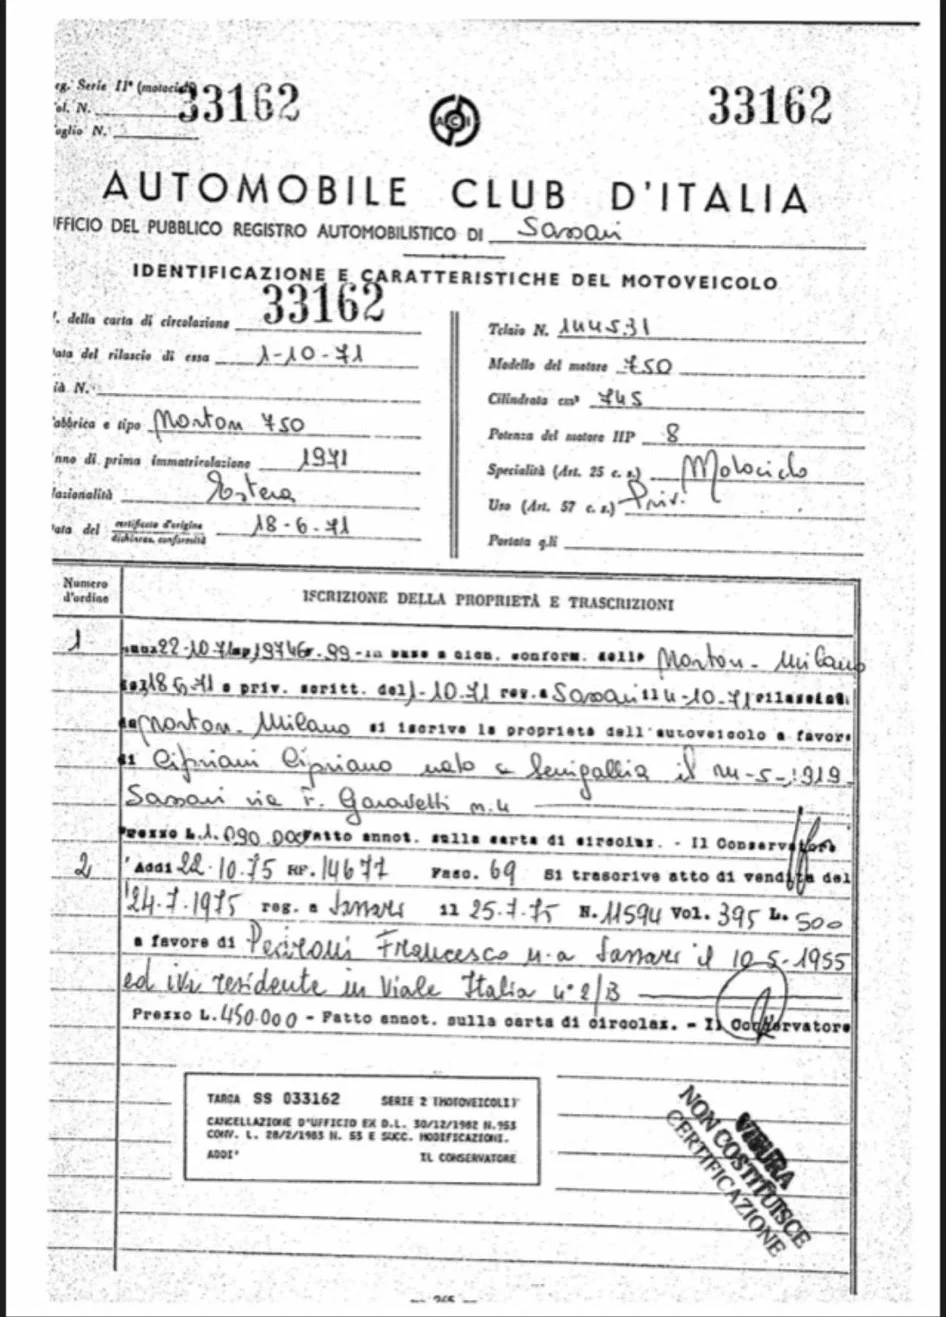 eg. Serie IIª (motocicli) 33162 33162
ol. N.
oglio N.
ACI
AUTOMOBILE CLUB D'ITALIA
UFFICIO DEL PUBBLICO REGISTRO AUTOMOBILISTICO DI Sassari
IDENTIFICAZIONE E CARATTERISTICHE DEL MOTOVEICOLO
. della carta di circolazione 33162
ata del rilascio di essa 1-10-71
ià N.
abbrica e tipo Norton 750
nno di prima immatricolazione 1971
azionalità Estera
ata del certificato d'origine
dichiaraz. conformità 18-6-71
Telaio N. 144531
Modello del motore 750
Cilindrata cm³ 745
Potenza del motore HP 8
Specialità (Art. 25 c. s.) Motociclo
Uso (Art. 57 c. s.) Priv.
Portata q.li
Numero d'ordine
ISCRIZIONE DELLA PROPRIETÀ E TRASCRIZIONI
1 22-10-71 19746 99 - in base a dich. conform. della Norton - Milano
del 18 6-71 e priv. scritt. del 1-10-71 reg. a Sassari il 4-10-71 rilasciat.
da Norton - Milano si iscrive la proprietà dell'autoveicolo a favore
di Cipriani Cipriano nato a Senigallia il -5-1919
Sassari via F. Garavetti n. 4
Prezzo L. 1.090.000 Fatto annot. sulla carta di circolaz. - Il Conservatore
2 Addì 22-10-75 RP. 14677 Fasc. 69 Si trascrive atto di vendita del
24-7-1975 reg. a Sassari il 25-7-75 N. 11594 Vol. 395 L. 500
a favore di Francesco n. a Sassari il 10-5-1955
ed ivi residente in Viale Italia n° 2/B
Prezzo L. 450.000 - Fatto annot. sulla carta di circolaz. - Il Conservatore
TARGA SS 033162 SERIE 2 (MOTOVEICOLI)
CANCELLAZIONE D'UFFICIO EX D.L. 30/12/1982 N. 953
CONV. L. 28/2/1983 N. 53 E SUCC. MODIFICAZIONI.
ADDI' IL CONSERVATORE
VISURA
NON COSTITUISCE
CERTIFICAZIONE